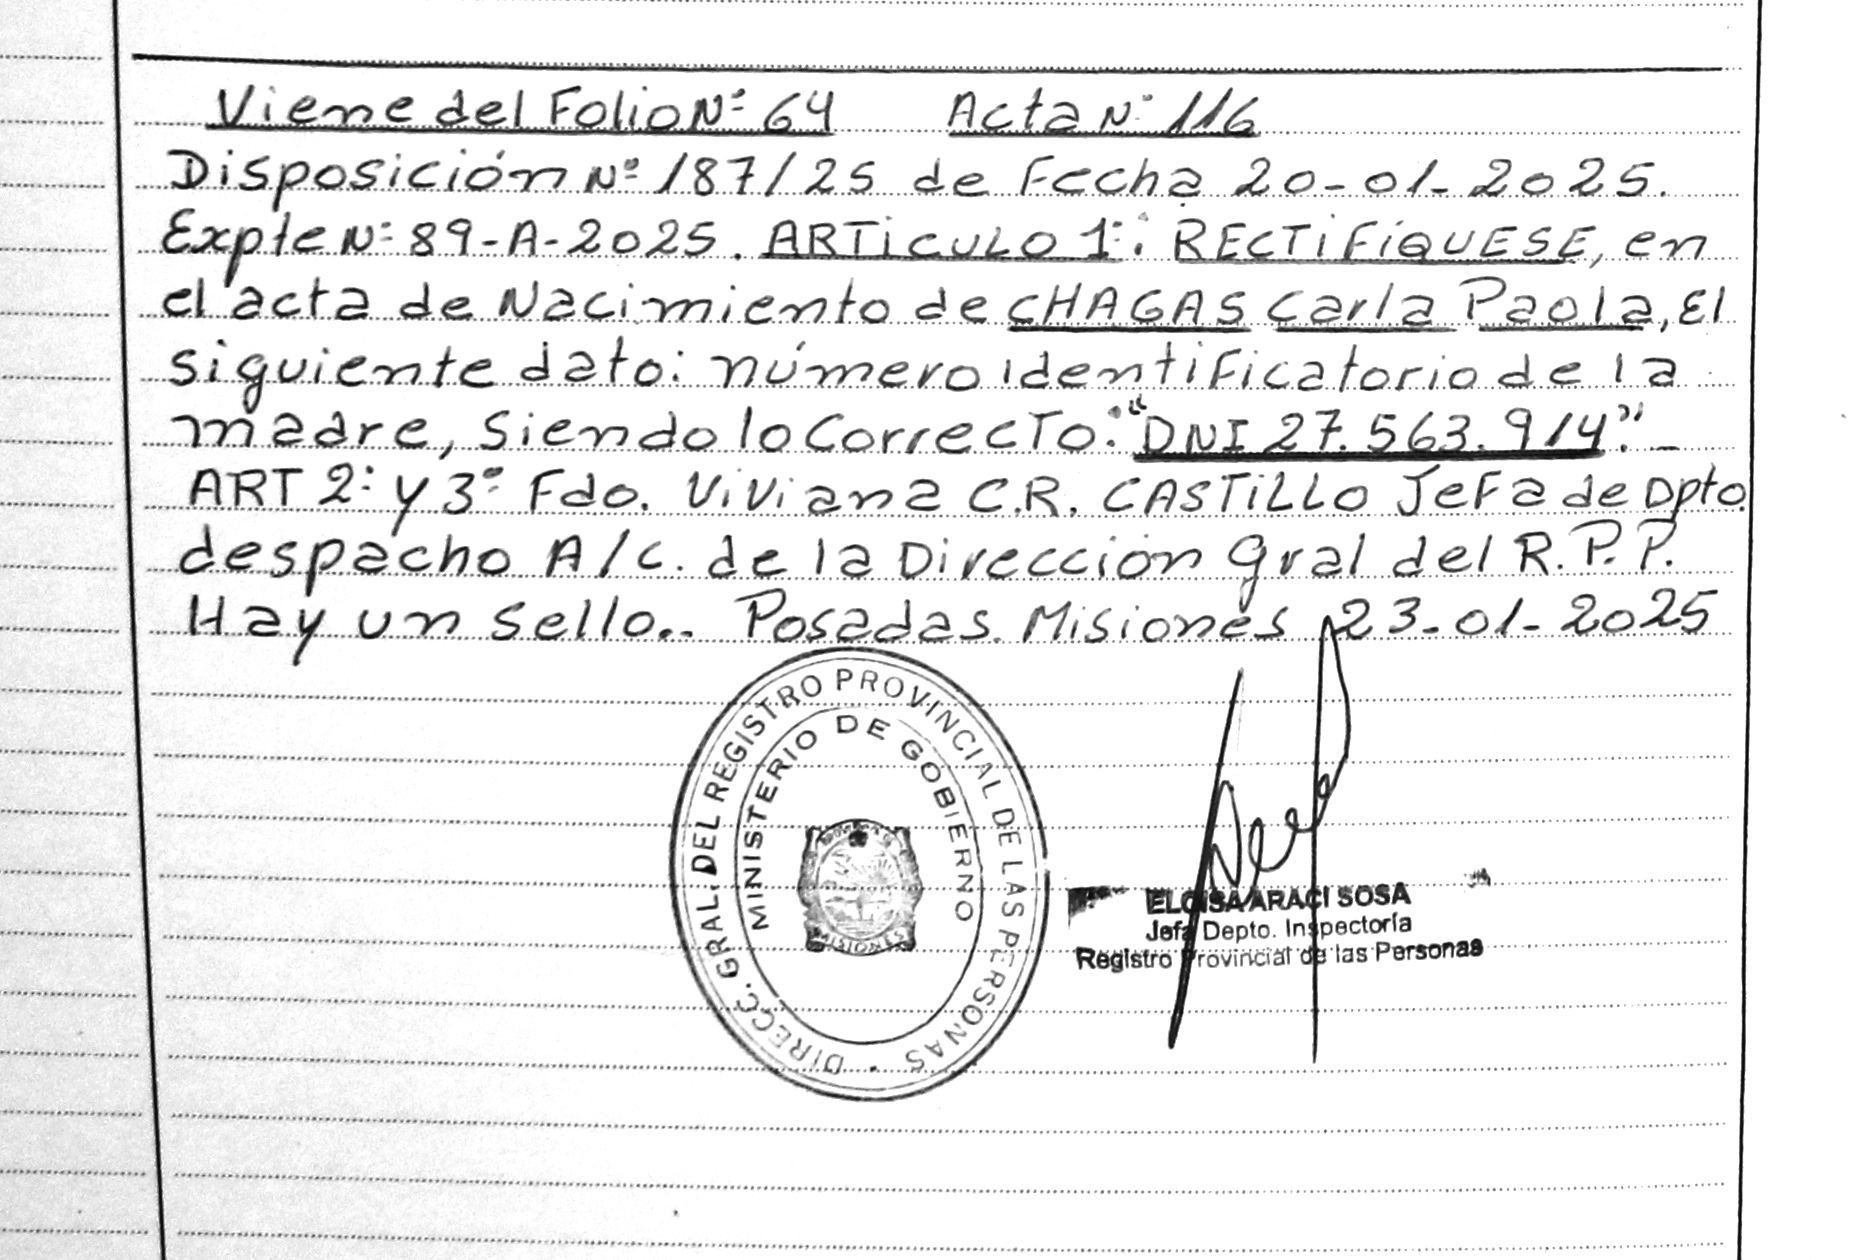 Viene del Folio Nº 64 Acta Nº 116
Disposición Nº 187/25 de Fecha 20-01-2025.
Expte Nº 89-A-2025. ARTiCULO 1º: RECTIFÍQUESE, en
el acta de Nacimiento de CHAGAS Carla Paola, El
siguiente dato: número identificatorio de la
madre, siendo lo CorrecTo: "DNI 27.563.914".-
ART 2º y 3º Fdo. Viviana C.R. CASTiLLO JeFa de Dpto.
despacho A/C. de la Dirección Gral del R.P.P.
Hay un sello.. Posadas. Misiones 23-01-2025
DIRECC. GRAL. DEL REGISTRO PROVINCIAL DE LAS PERSONAS
MINISTERIO DE GOBIERNO
MISIONES
ELOISA ARACI SOSA
Jefa Depto. Inspectoría
Registro Provincial de las Personas